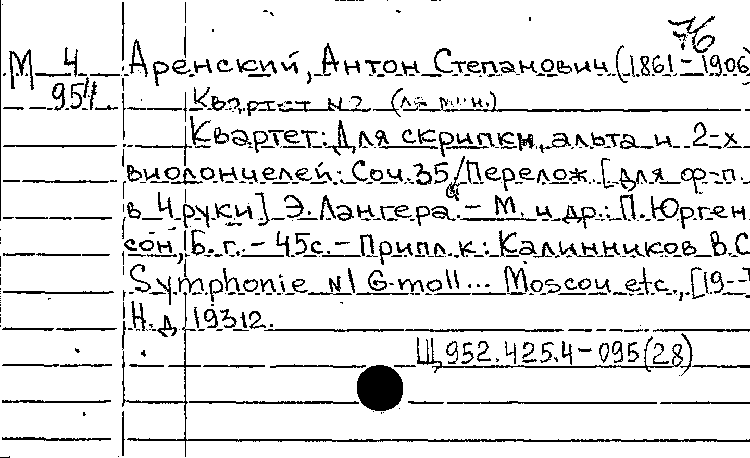 76
М 4 Аренский, Антон Степанович (1861-1906)
954 Квартет №2 (ля мин.)
Квартет: Для скрипки, альта и 2-х
виолончелей: Соч. 35/Перелож. [для ф-п.
в 4 руки] Э. Лангера. - М. и др.: П. Юрген
сон, Б. г. - 45с. - Припл. к: Калинников В.С
Symphonie №1 G-moll... Moscou etc., [19--]
Н.д 19312.
Ц 952.425.4-095(28)